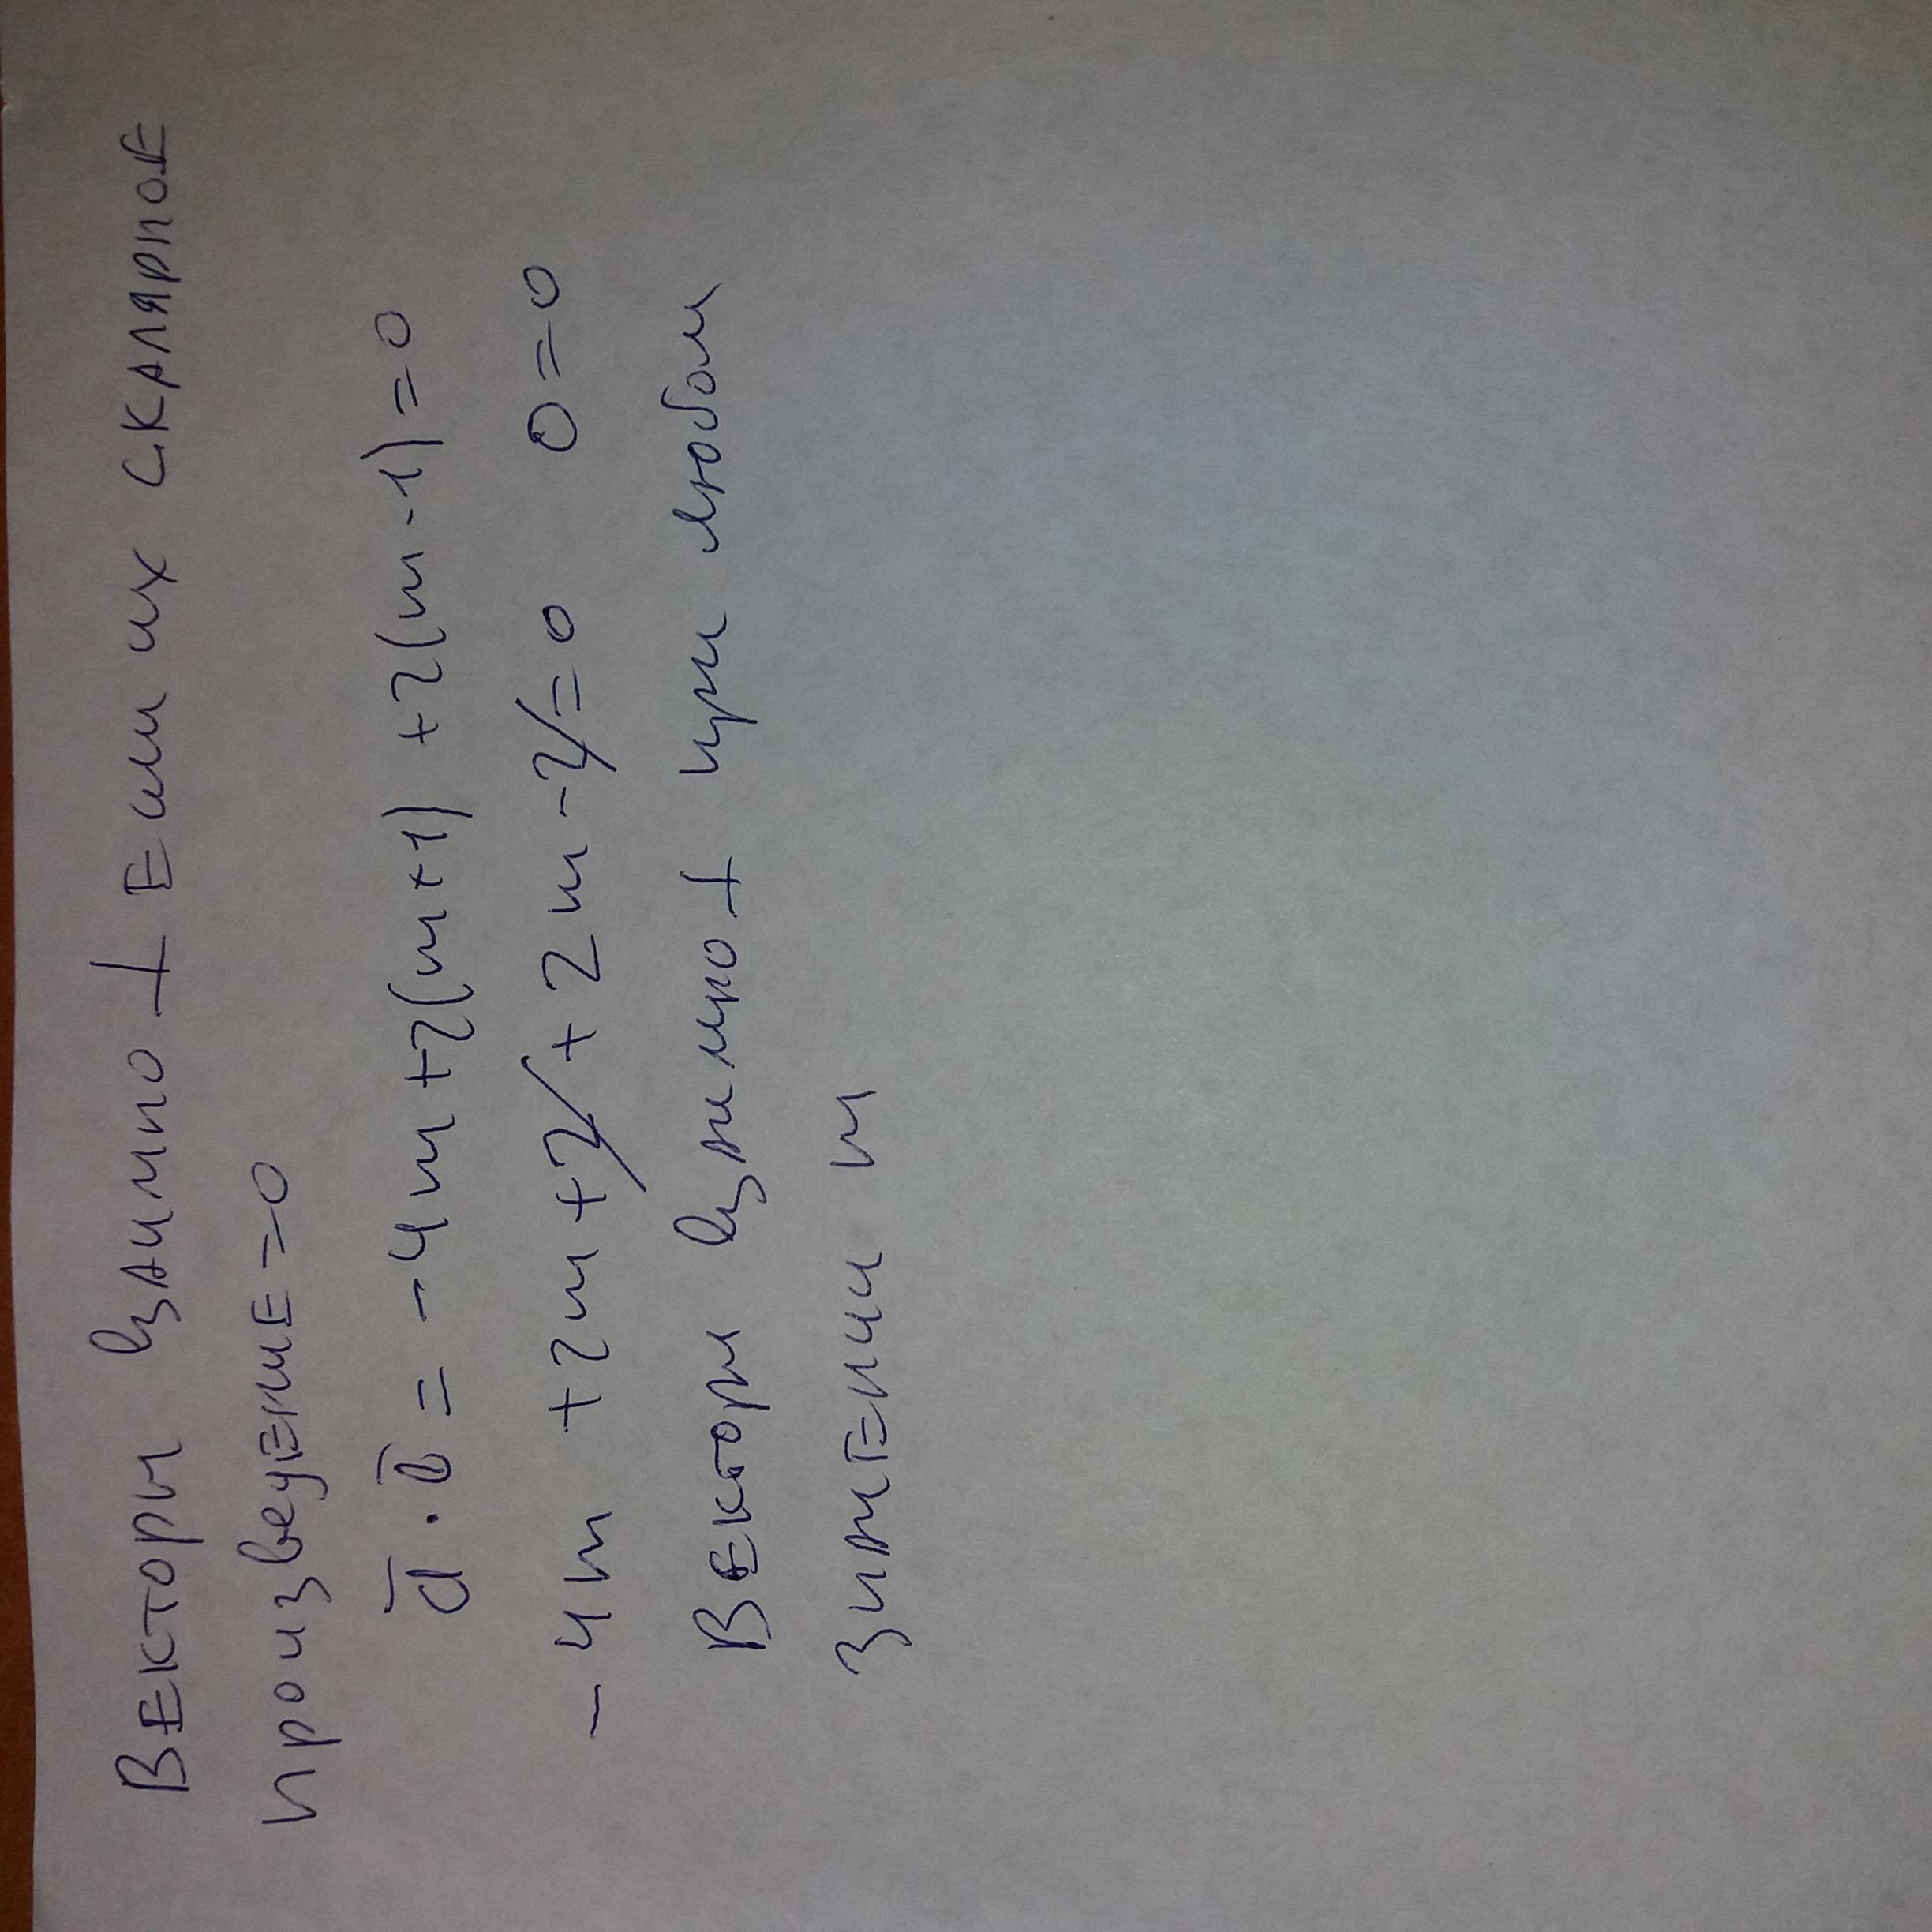 Векторы взаимно ⊥ Если их скалярное
произведение = 0
a̅ · b̅ = -4m + 2(m+1) + 2(m-1) = 0
-4m + 2m + 2 + 2m - 2 = 0 0 = 0
Векторы взаимно ⊥ при любом
значении m